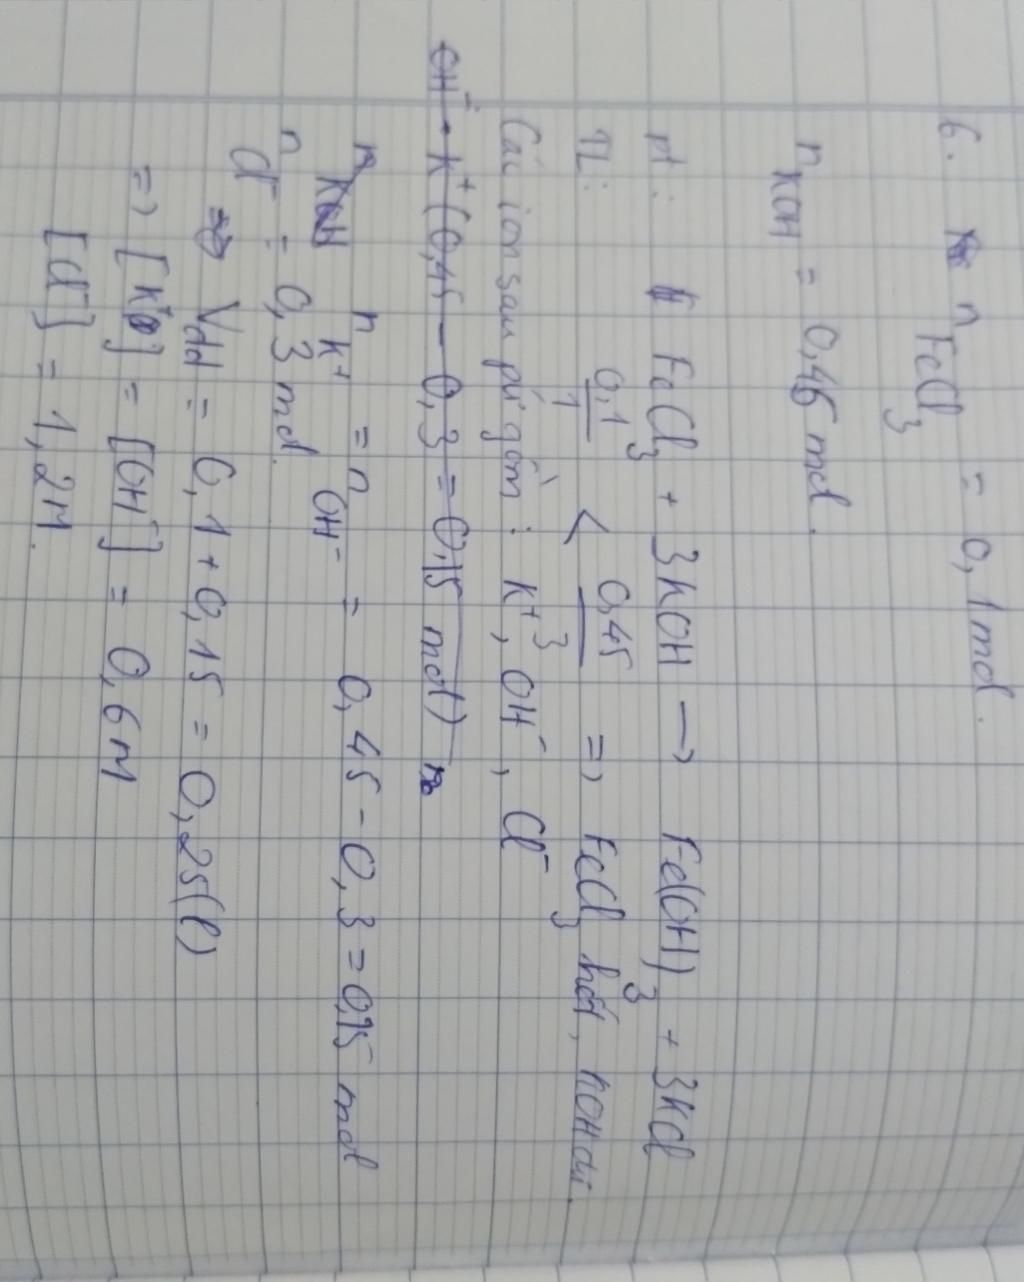 6. n FeCl3 = 0,1 mol.
n KOH = 0,45 mol.
pt: FeCl3 + 3KOH → Fe(OH)3 + 3KCl
TL: 0,1/1 < 0,45/3 => FeCl3 hết, KOH dư.
Các ion sau pứ gồm: K+, OH-, Cl-
OH- K+ (0,45 - 0,3 = 0,15 mol)
n K+ = n OH- = 0,45 - 0,3 = 0,15 mol
n Cl- = 0,3 mol.
Vdd = 0,1 + 0,15 = 0,25(l)
=> [K+] = [OH-] = 0,6M
[Cl-] = 1,2M.